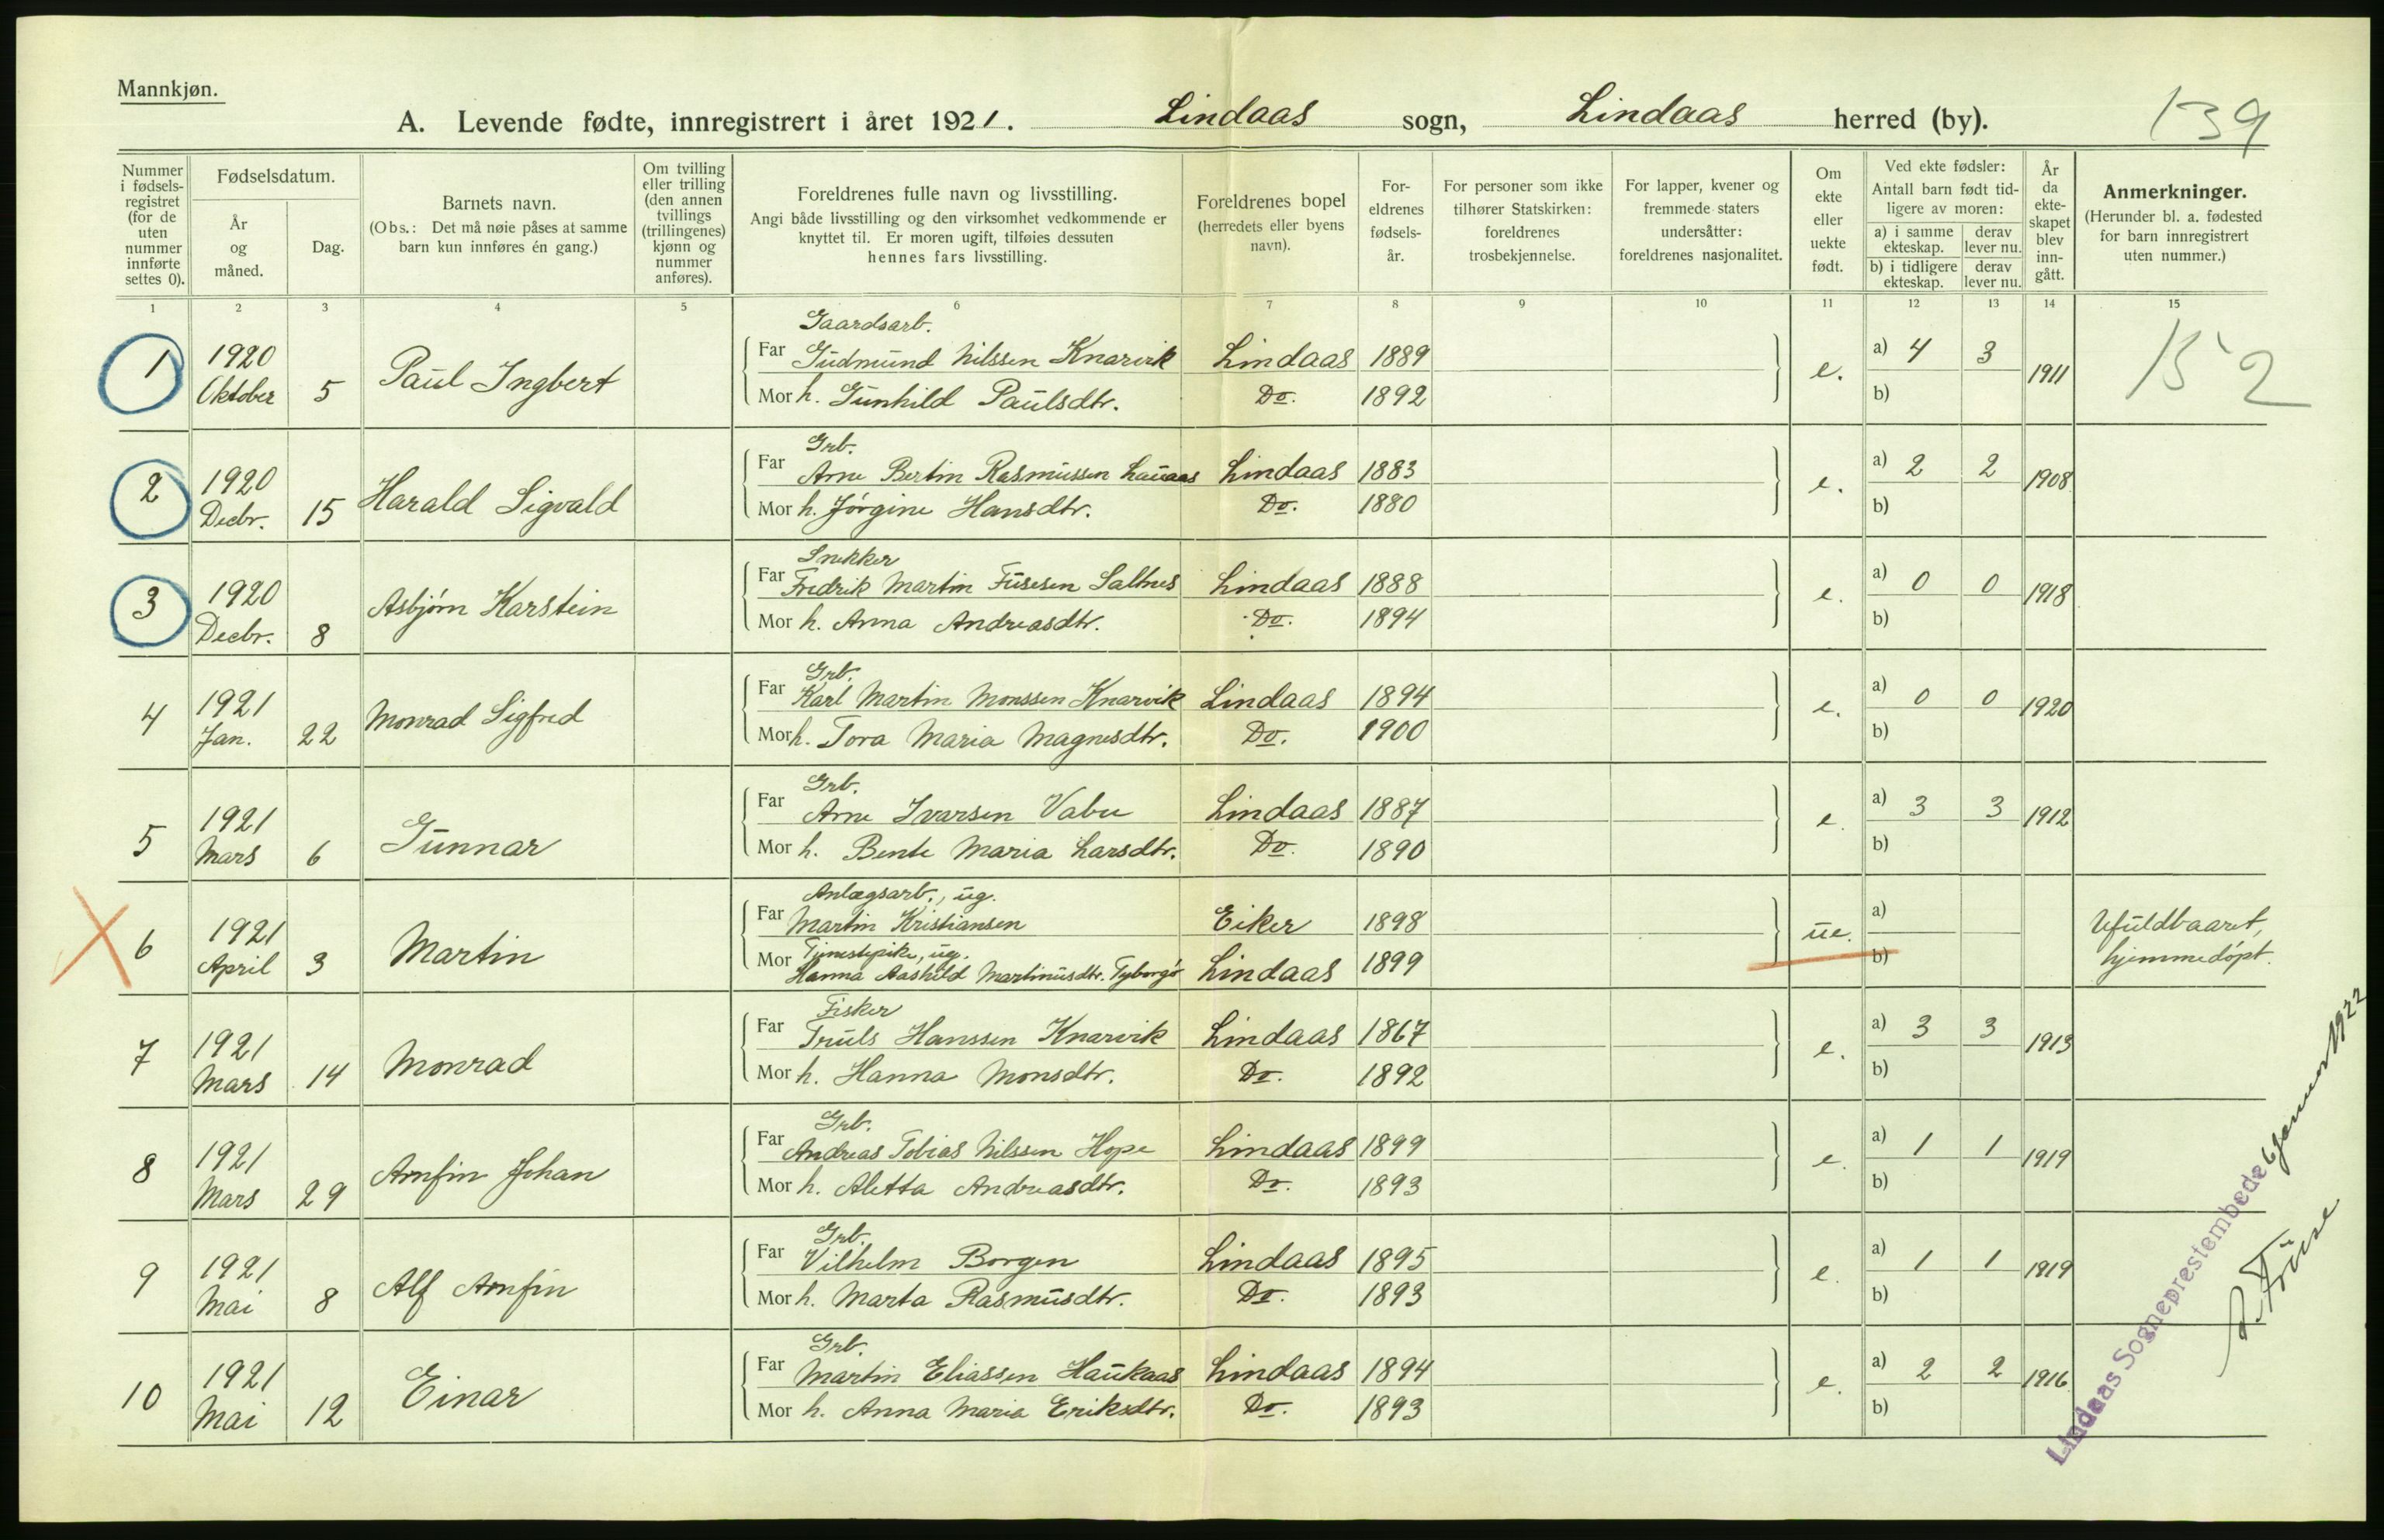 Mannkjøn.
A. Levende fødte, innregistrert i året 1921. Lindaas sogn, Lindaas herred (by). 139
Nummer i fødsels-registret (for de uten nummer innførte settes 0).
Fødselsdatum.
År og måned.
Dag.
Barnets navn.
(Obs.: Det må nøie påses at samme barn kun innføres én gang.)
Om tvilling eller trilling (den annen tvillings (trillingenes) kjønn og nummer anføres).
Foreldrenes fulle navn og livsstilling.
Angi både livsstilling og den virksomhet vedkommende er knyttet til. Er moren ugift, tilføies dessuten hennes fars livsstilling.
Foreldrenes bopel (herredets eller byens navn).
For-eldrenes fødsels-år.
For personer som ikke tilhører Statskirken: foreldrenes trosbekjennelse.
For lapper, kvener og fremmede staters undersåtter: foreldrenes nasjonalitet.
Om ekte eller uekte født.
Ved ekte fødsler:
Antall barn født tid-ligere av moren:
a) i samme ekteskap. derav lever nu.
b) i tidligere ekteskap. derav lever nu.
År da ekte-skapet blev inn-gått.
Anmerkninger.
(Herunder bl. a. fødested for barn innregistrert uten nummer.)
1 2 3 4 5 6 7 8 9 10 11 12 13 14 15
Gaardsarb.
1 1920 Oktober 5 Paul Ingbert Far Gudmund Nilssen Knarvik Lindaas 1889 e. a) 4 3 1911 152
Mor h. Gunhild Paulsdtr. Do. 1892 b)
Grb.
2 1920 Decbr. 15 Harald Sigvald Far Arne Bertin Rasmussen Lauaas Lindaas 1883 e. a) 2 2 1908
Mor h. Jørgine Hansdtr. Do. 1880 b)
Snekker
3 1920 Decbr. 8 Asbjørn Karstein Far Fredrik Martin Fusesen Saltnes Lindaas 1888 e. a) 0 0 1918
Mor h. Anna Andreasdtr. Do. 1894 b)
Grb.
4 1921 Jan. 22 Monrad Sigfred Far Karl Martin Monssen Knarvik Lindaas 1894 e. a) 0 0 1920
Mor h. Tora Maria Magnesdtr. Do. 1900 b)
Grb.
5 1921 Mars 6 Gunnar Far Arne Ivarsen Vabu Lindaas 1887 e. a) 3 3 1912
Mor h. Bente Maria Larsdtr. Do. 1890 b)
Anlægsarb., ug.
6 1921 April 3 Martin Far Martin Kristiansen Eiker 1898 ue. a) Ufuldbaaret, hjemmedøpt.
Tjenestepike, ug.
Mor Hanna Aashild Martinusdtr. Lindaas 1899 b)
Fisker
7 1921 Mars 14 Monrad Far Truls Hanssen Knarvik Lindaas 1867 e. a) 3 3 1913
Mor h. Hanna Monsdtr. Do. 1892 b)
Grb.
8 1921 Mars 29 Arnfin Johan Far Andreas Tobias Nilssen Hope Lindaas 1899 e. a) 1 1 1919
Mor h. Aletta Andreasdtr. Do. 1893 b)
Grb.
9 1921 Mai 8 Alf Arnfin Far Vilhelm Borgen Lindaas 1895 e. a) 1 1 1919
Mor h. Marta Rasmusdtr. Do. 1893 b)
Grb.
10 1921 Mai 12 Einar Far Martin Eliassen Haukaas Lindaas 1894 e. a) 2 2 1916
Mor h. Anna Maria Eriksdtr. Do. 1893 b)
Lindaas Sogneprestembede 6 januar 1922